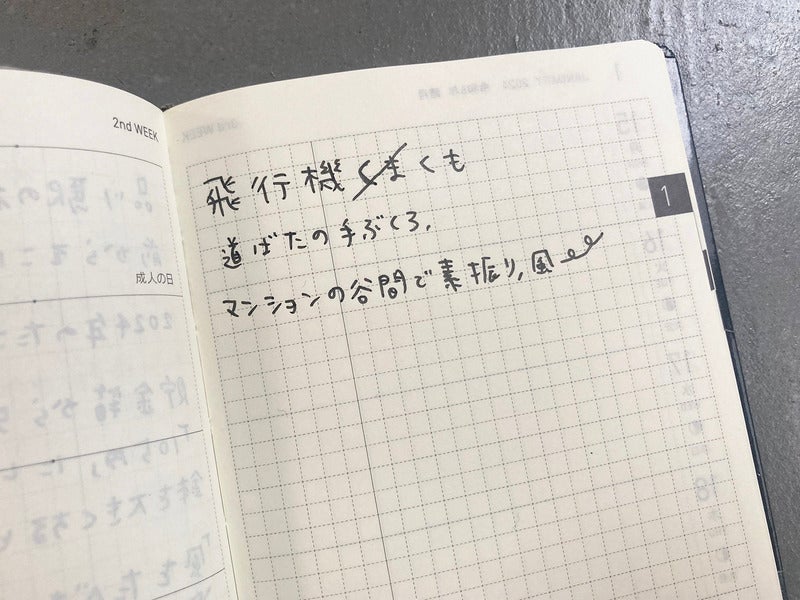 2nd WEEK
成人の日
飛行機 くまくも
道ばたの手ぶくろ。
マンションの谷間で素振り、風
1